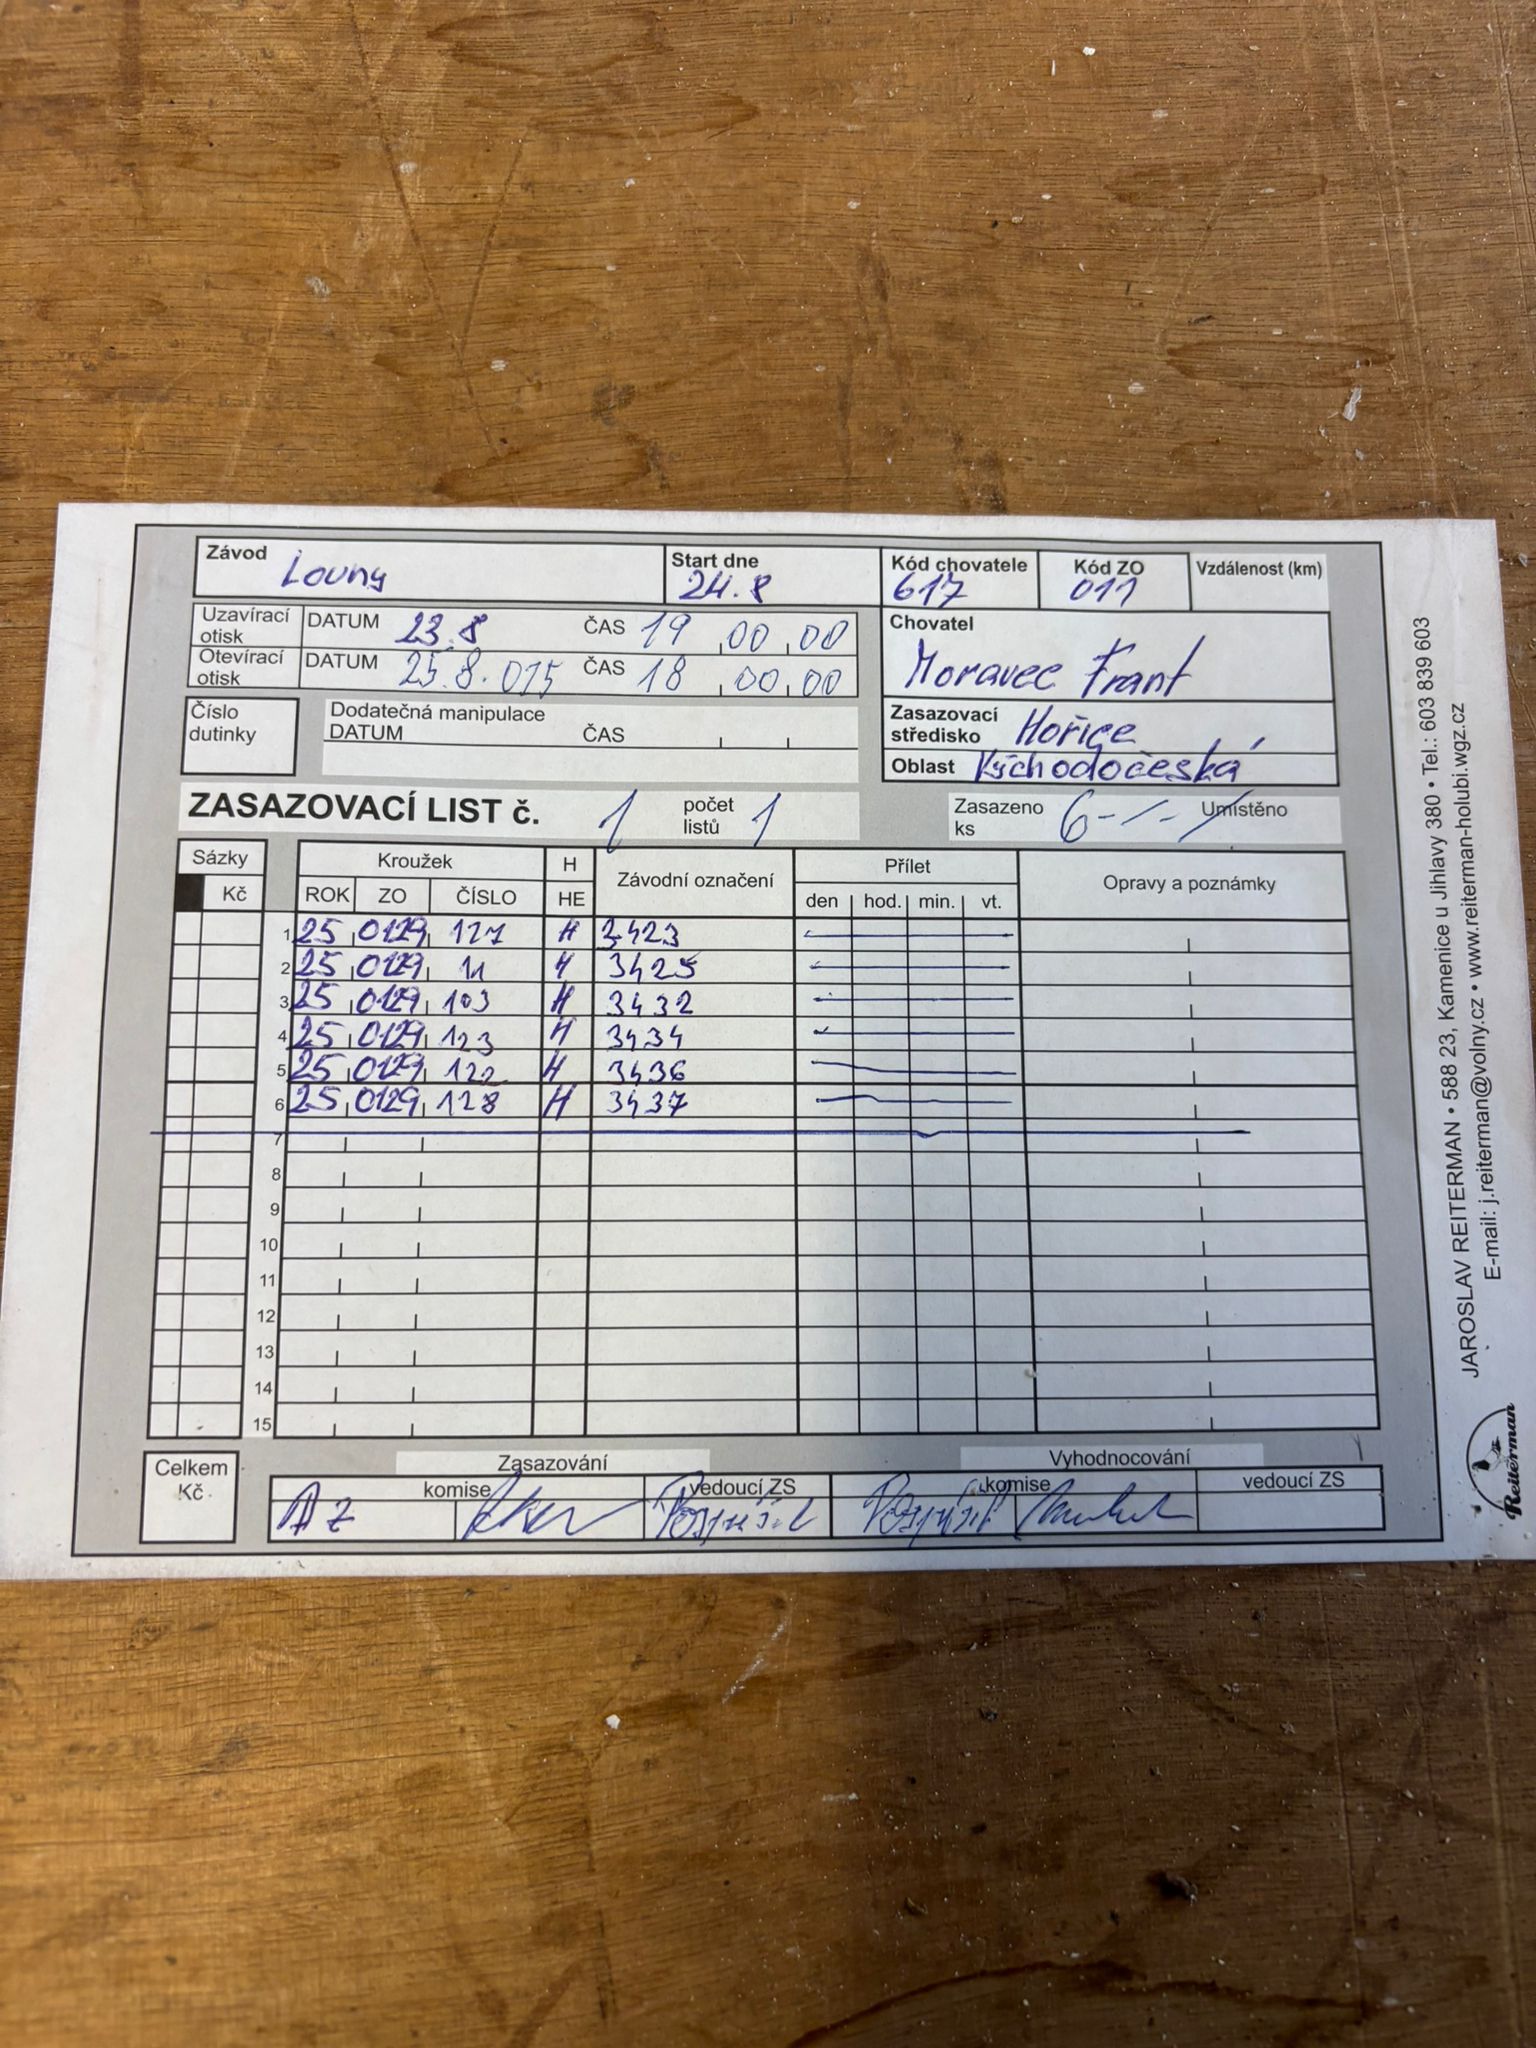 Závod Louny Start dne 24.8 Kód chovatele 617 Kód ZO 011 Vzdálenost (km)
Uzavírací otisk DATUM 23.8 ČAS 19 00 00
Otevírací otisk DATUM 25.8.015 ČAS 18 00 00
Chovatel
Moravec Frant
Číslo dutinky
Dodatečná manipulace
DATUM ČAS
Zasazovací středisko Hořice
Oblast Východočeská
ZASAZOVACÍ LIST č. 1 počet listů 1 Zasazeno ks 6 Umístěno
Sázky Kroužek H Závodní označení Přílet Opravy a poznámky
Kč ROK ZO ČÍSLO HE den hod. min. vt.
1 25 0129 127 H 3423
2 25 0129 11 H 3425
3 25 0129 103 H 3432
4 25 0129 123 H 3434
5 25 0129 122 H 3436
6 25 0129 128 H 3437
7
8
9
10
11
12
13
14
15
Celkem Kč
Zasazování Vyhodnocování
komise vedoucí ZS komise vedoucí ZS
JAROSLAV REITERMAN • 588 23, Kamenice u Jihlavy 380 • Tel.: 603 839 603
E-mail: j.reiterman@volny.cz • www.reiterman-holubi.wgz.cz
Reiterman